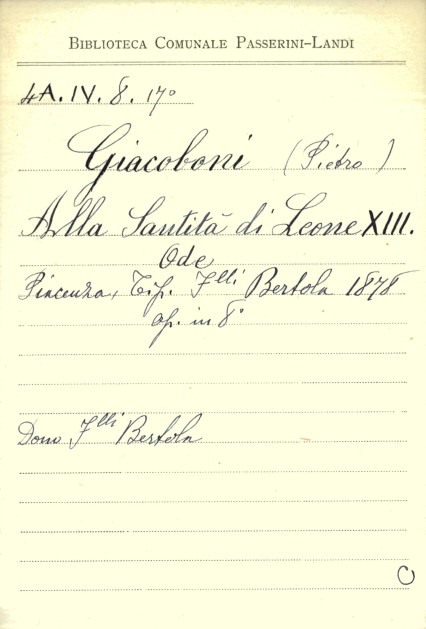 BIBLIOTECA COMUNALE PASSERINI-LANDI
4A. IV. 8. 17°
Giacoboni (Pietro)
Alla Santità di Leone XIII.
Ode
Piacenza, Tip. Flli Bertola 1878
op. in 8°
Dono Flli Bertola
C